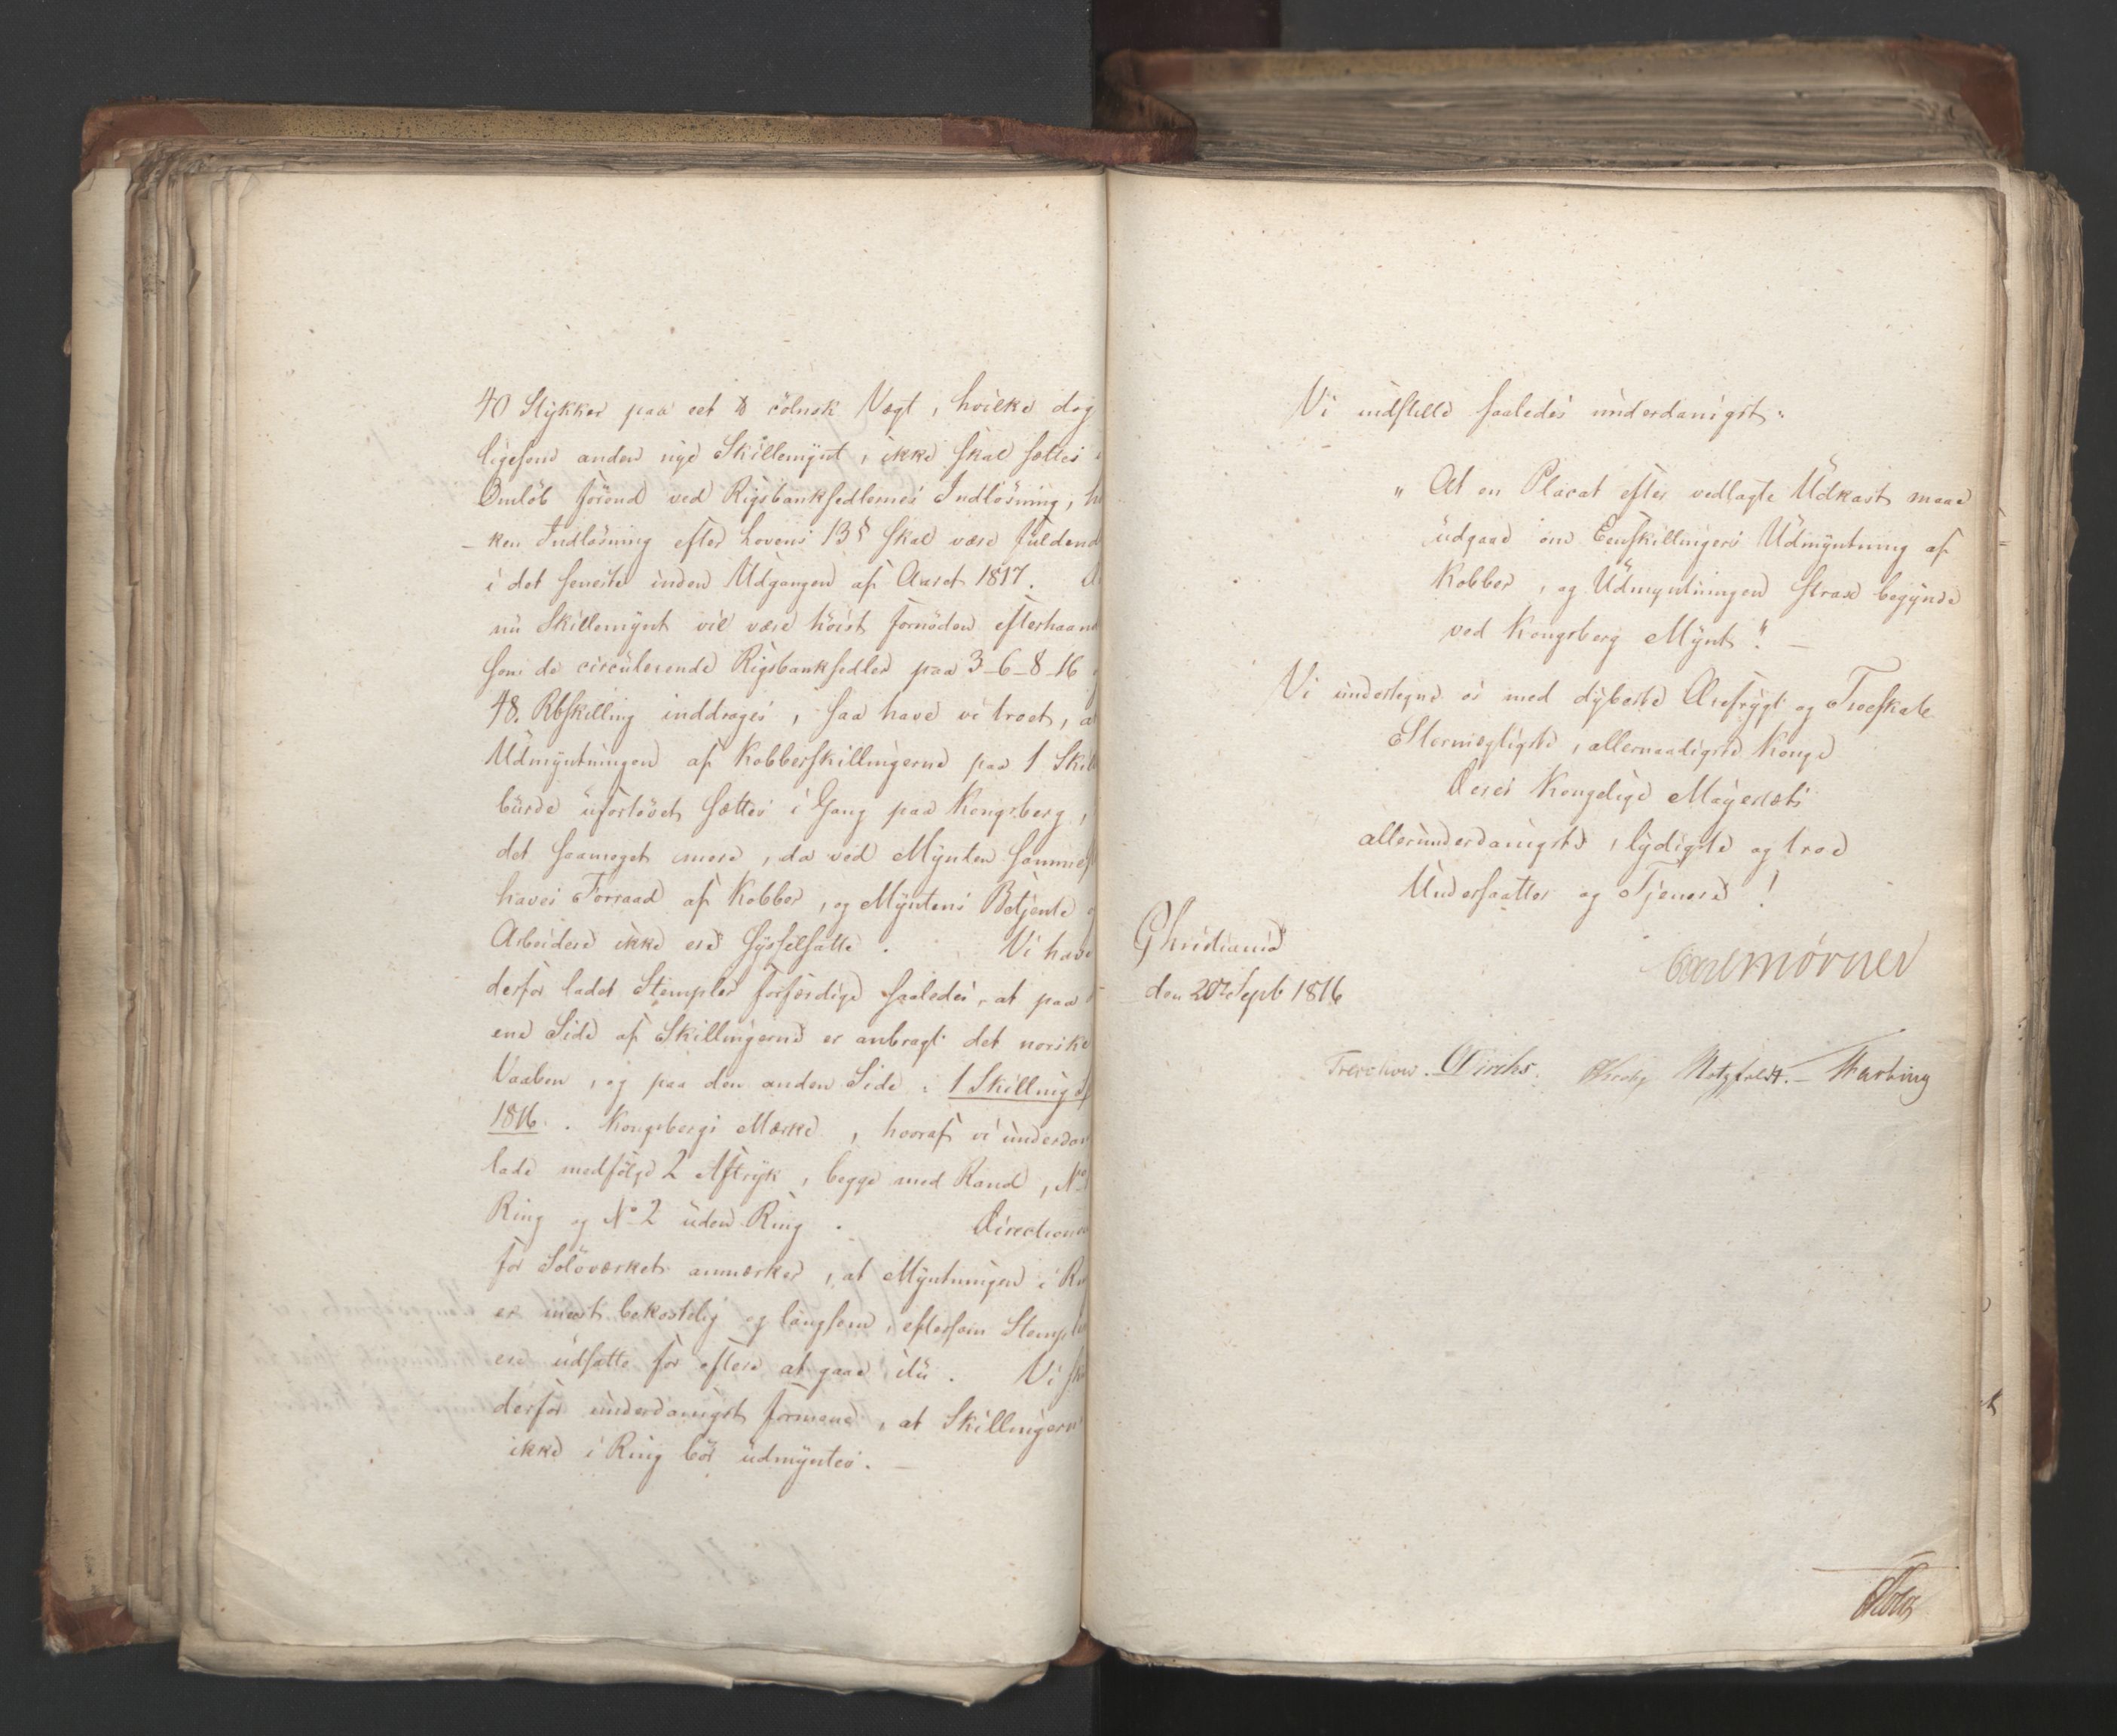 40 Stykker paa eet ℔ cölnsk Vægt, hvilke dog
ligesom anden nye Skillemynt, ikke skal sættes i
Omløb førend ved Rigsbanksedlernes Indløsning, h
-ken Indløsning efter Lovens 13§ skal være fuldend
i det seneste inden Udgangen af Aaret 1817.
nu Skillemynt vil være høist fornøden efterhaand
som de circulerende Rigsbanksedler paa 3-6-8-16
48. Rbskilling inddrages, saa have vi troet, a
Udmyntningen af Kobberskillingerne paa 1 Skil
burde ufortøvet sættes i Gang paa Kongsberg,
det saameget mere, da ved Mynten sammest
haves Forraad af Kobber, og Myntens Betjente
Arbeidere ikke ere sysselsatte. Vi have
derfor ladet Stempler forfærdige saaledes, at paa
ene Side af Skillingerne er anbragt det norske
Vaaben, og paa den anden Side: 1 Skilling
1816. Kongsbergs Mærke, hvoraf vi underdan
lade medfølge 2 Aftryk, begge med Rand, No 1
Ring og No 2 uden Ring. Directionen
for Sølvværket anmærker, at Myntningen i Rin
er meest bekostelig og langsom, eftersom Stemple
ere udsatte for oftere at gaae itu. Vi sk
derfor underdanigst formene, at Skillingern
ikke i Ring bør udmyntes. —
Vi indstille saaledes underdanigst:
"At en Placat efter vedlagte Udkast maae
udgaae om Eenskillingers Udmyntning af
Kobber, og Udmyntningen strax begynde
ved Kongsberg Mynt". —
Vi undertegne os med dybeste Ærefrygt og Troeskab
Stormægtigste, allernaadigste Konge
Deres Kongelige Majestæts
allerunderdanigste, lydigste og troe
Undersaatter og Tjenere!
Christiania
den 20de Sept 1816
Mörner
Treschow. Diriks. Motzfeldt. — Fasting